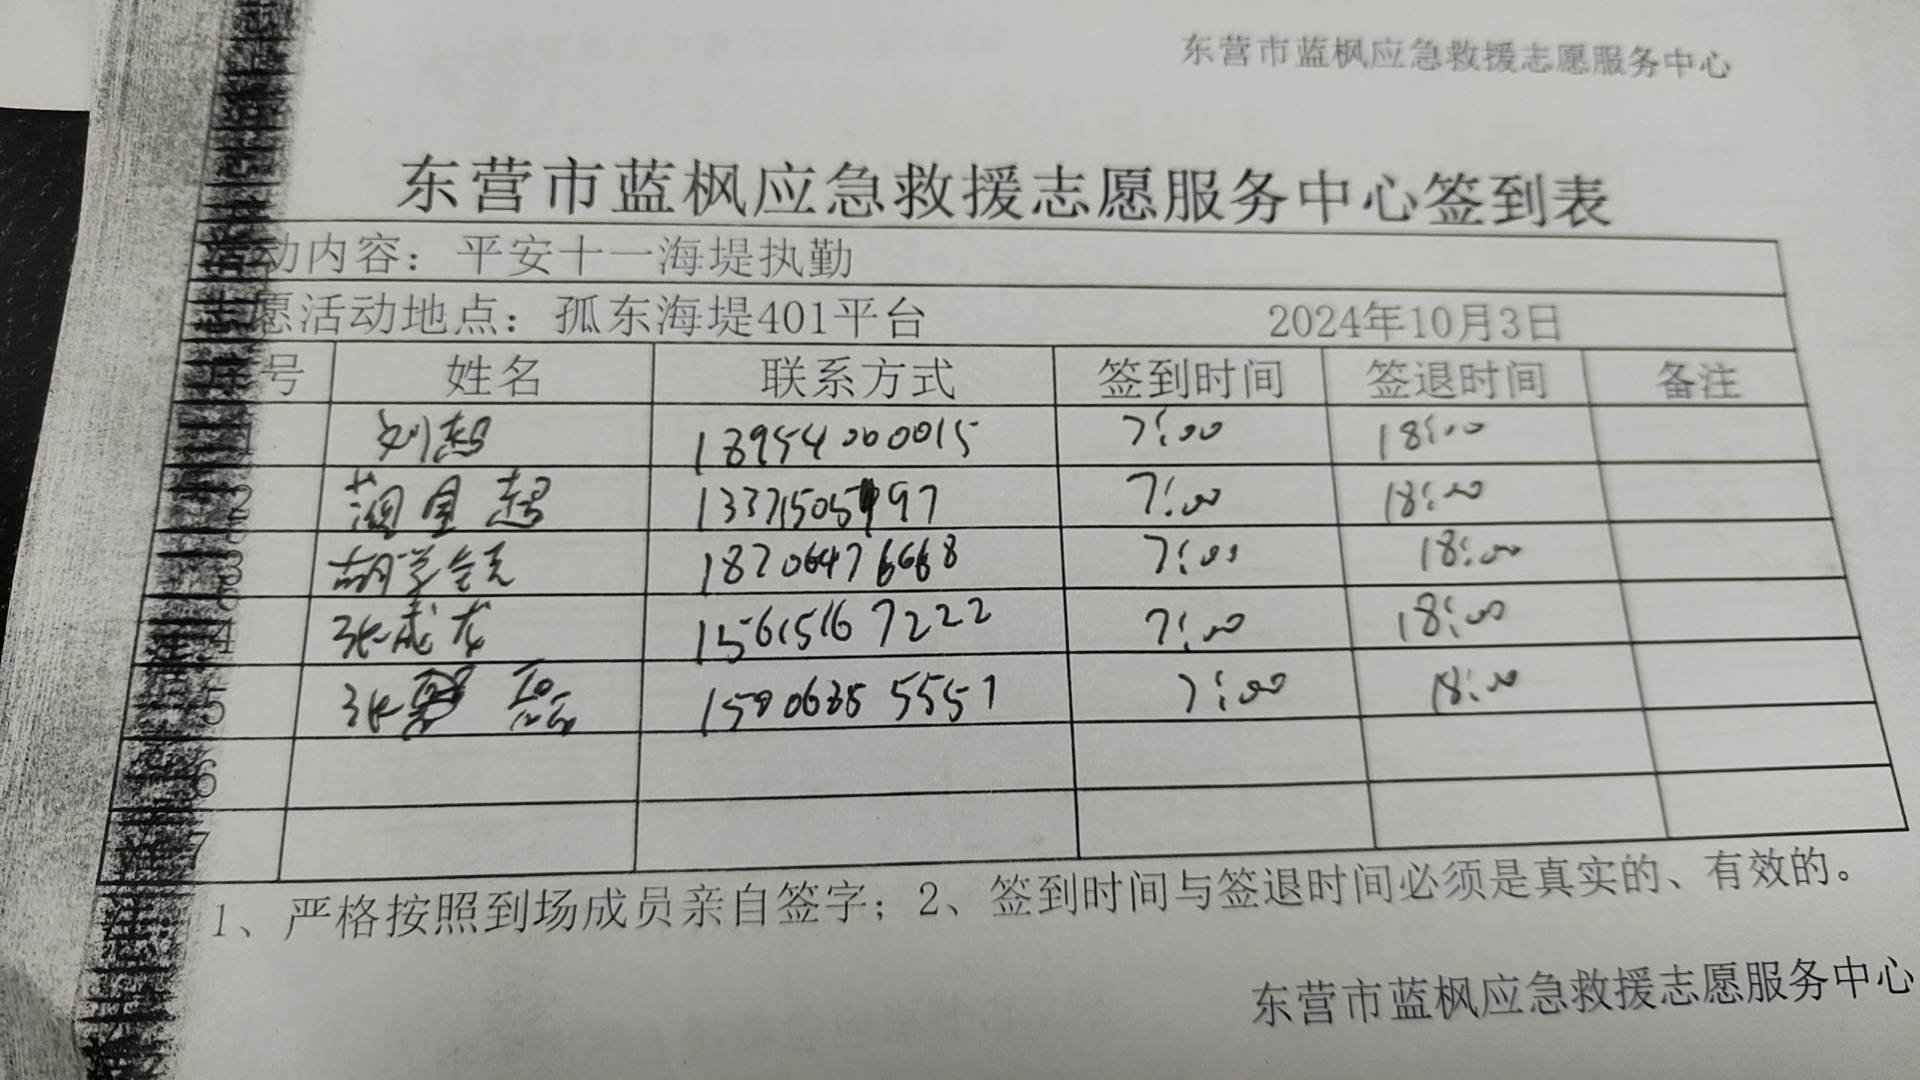 东营市蓝枫应急救援志愿服务中心
东营市蓝枫应急救援志愿服务中心签到表
活动内容：平安十一海堤执勤
志愿活动地点：孤东海堤401平台 2024年10月3日
序号 姓名 联系方式 签到时间 签退时间 备注
1 刘超 13954000015 7:00 18:00
2 超 7:00 18:00
3 胡学全 18706476668 7:00 18:00
4 张成龙 15615167222 7:00 18:00
5 张 7:00 18:00
6
7
注：1、严格按照到场成员亲自签字；2、签到时间与签退时间必须是真实的、有效的。
东营市蓝枫应急救援志愿服务中心